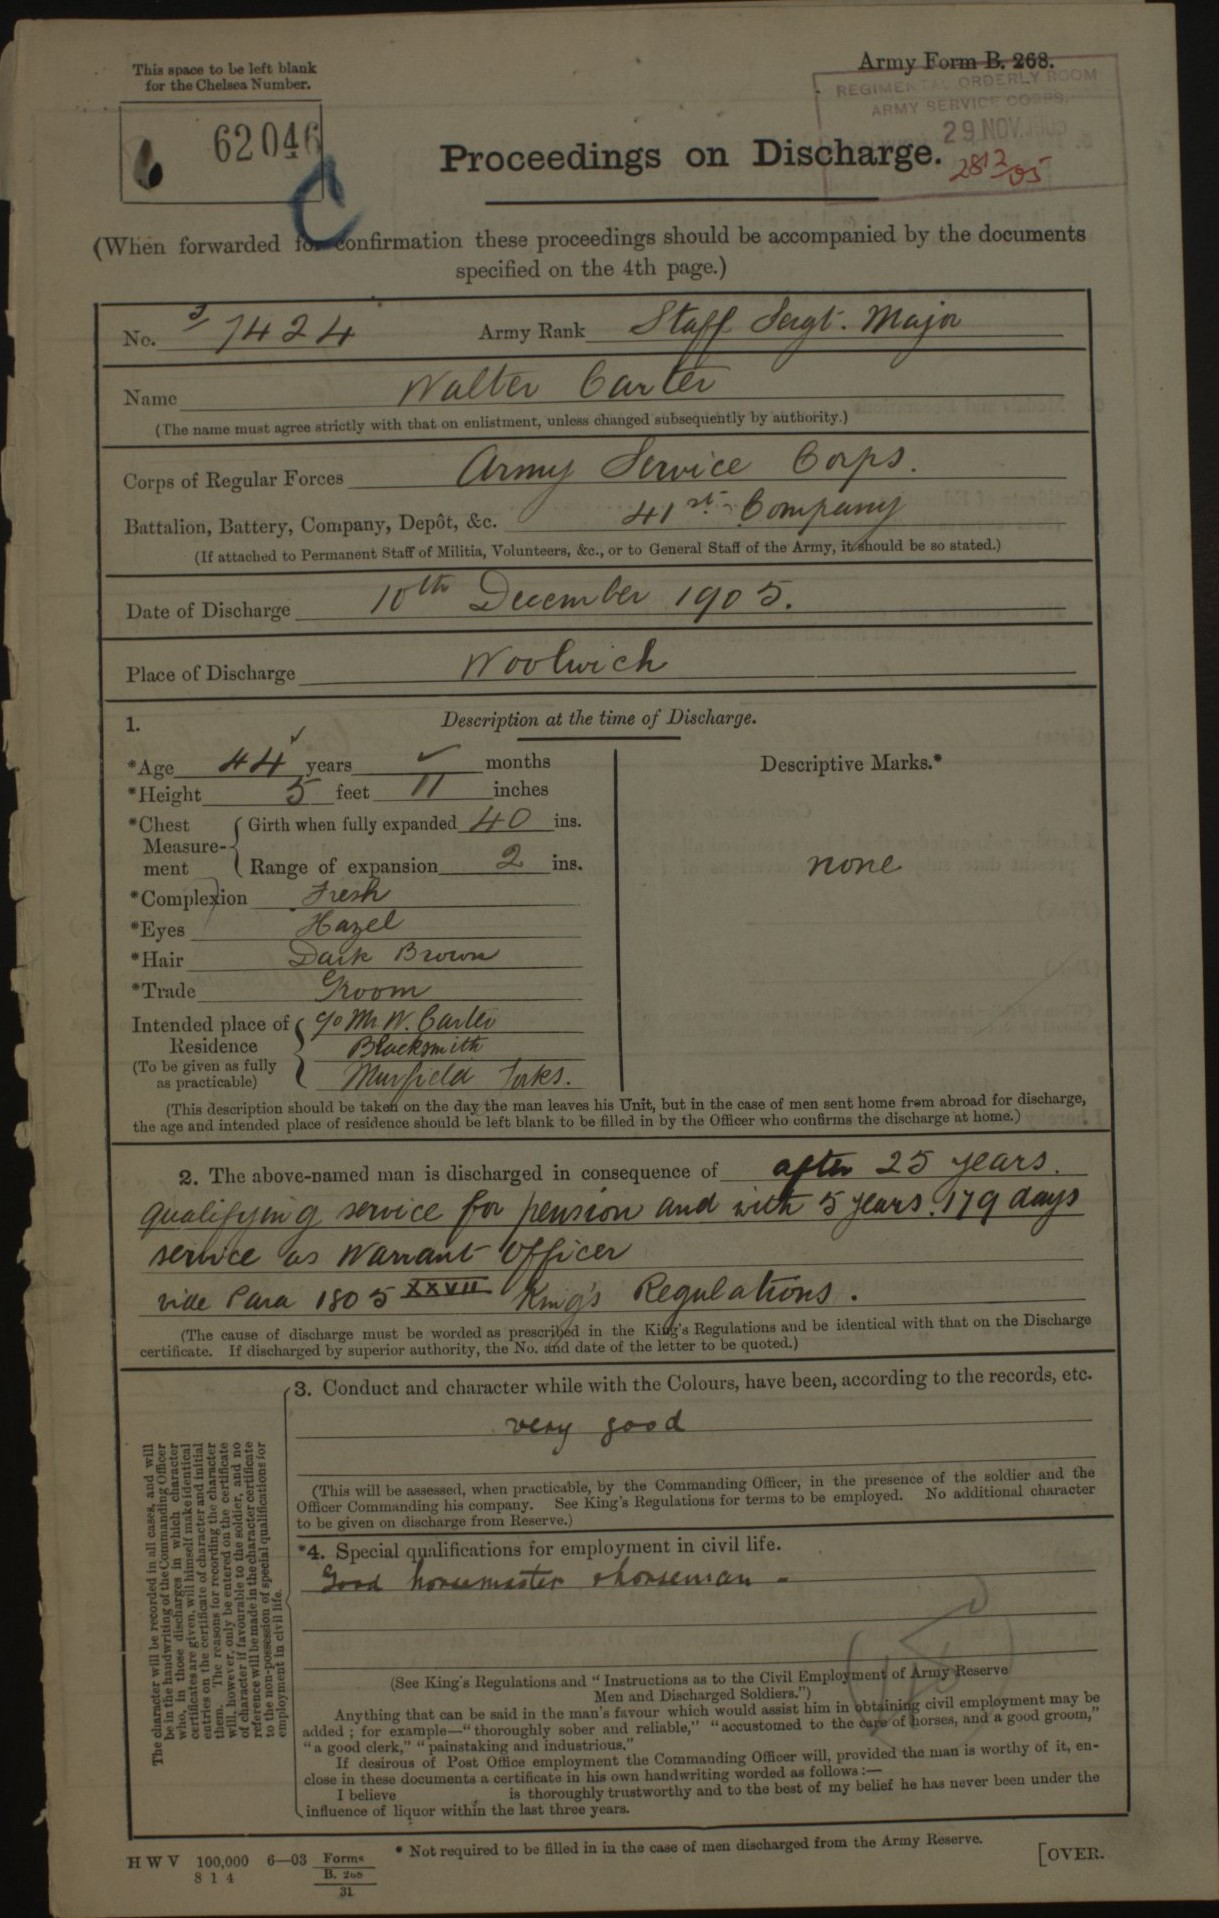 This space to be left blank
for the Chelsea Number.
Army Form B. 268.
REGIMENTAL ORDERLY ROOM
ARMY SERVICE CORPS.
29 NOV.
2812/05
62046
C
Proceedings on Discharge.
(When forwarded for confirmation these proceedings should be accompanied by the documents
specified on the 4th page.)
No. S/7424 Army Rank Staff Sergt. Major
Name Walter Carter
(The name must agree strictly with that on enlistment, unless changed subsequently by authority.)
Corps of Regular Forces Army Service Corps.
Battalion, Battery, Company, Depôt, &c. 41st Company
(If attached to Permanent Staff of Militia, Volunteers, &c., or to General Staff of the Army, it should be so stated.)
Date of Discharge 10th December 1905.
Place of Discharge Woolwich
1. Description at the time of Discharge.
*Age 44 years ✓ months
*Height 5 feet 11 inches
*Chest Measure-ment { Girth when fully expanded 40 ins.
Range of expansion 2 ins.
*Complexion Fresh
*Eyes Hazel
*Hair Dark Brown
*Trade Groom
Intended place of Residence
(To be given as fully as practicable)
c/o Mr W. Carter
Blacksmith
Murfield Yorks.
Descriptive Marks.*
none
(This description should be taken on the day the man leaves his Unit, but in the case of men sent home from abroad for discharge,
the age and intended place of residence should be left blank to be filled in by the Officer who confirms the discharge at home.)
2. The above-named man is discharged in consequence of after 25 years.
qualifying service for pension and with 5 years. 179 days
service as Warrant Officer
vide Para 1805 XXVII King's Regulations.
(The cause of discharge must be worded as prescribed in the King's Regulations and be identical with that on the Discharge
certificate. If discharged by superior authority, the No. and date of the letter to be quoted.)
The character will be recorded in all cases, and will
be in the handwriting of the Commanding Officer
who, in those discharges in which character
certificates are given, will himself make identical
entries on the certificate of character and initial
them. The reasons for recording the character
will, however, only be entered on the certificate
of character if favourable to the soldier, and no
reference will be made in the character certificate
to the non-possession of special qualifications for
employment in civil life.
3. Conduct and character while with the Colours, have been, according to the records, etc.
very good
(This will be assessed, when practicable, by the Commanding Officer, in the presence of the soldier and the
Officer Commanding his company. See King's Regulations for terms to be employed. No additional character
to be given on discharge from Reserve.)
*4. Special qualifications for employment in civil life.
Good horsemaster & horseman -
(See King's Regulations and "Instructions as to the Civil Employment of Army Reserve
Men and Discharged Soldiers.")
Anything that can be said in the man's favour which would assist him in obtaining civil employment may be
added; for example—"thoroughly sober and reliable," "accustomed to the care of horses, and a good groom,"
"a good clerk," "painstaking and industrious."
If desirous of Post Office employment the Commanding Officer will, provided the man is worthy of it, en-
close in these documents a certificate in his own handwriting worded as follows:—
I believe is thoroughly trustworthy and to the best of my belief he has never been under the
influence of liquor within the last three years.
* Not required to be filled in in the case of men discharged from the Army Reserve.
[OVER.
H W V 100,000 6—03 Forms
8 1 4 B. 268
31